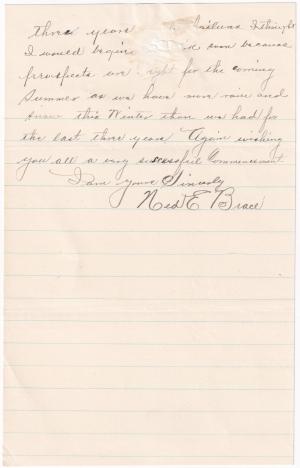 three years failures I thought
I would begin soon because
prospects are right for the coming
Summer as we have more rain and
snow this Winter than we had for
the last three years Again wishing
you all a very successful Commencement
I am yours Sincerely
Ned E Brace